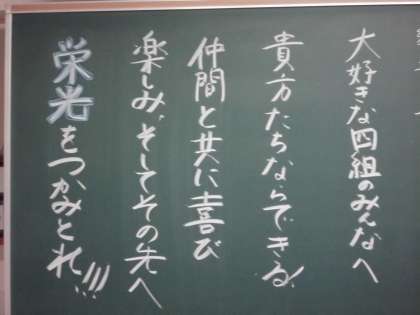 大好きな四組のみんなへ
貴方たちならできる!
仲間と共に喜び
楽しみ、そしてその先へ
栄光をつかみとれ!!!